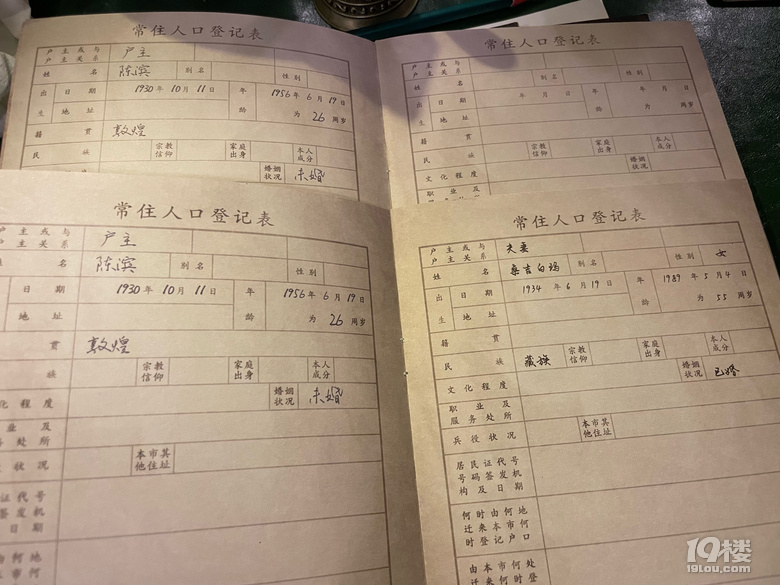 常住人口登记表
户主或与
户主关系 户主
姓名 陈滨 别名 性别
出生 日期 1930年10月11日 年龄 1956年6月19日
地址 为26周岁
籍贯 敦煌
民族 宗教信仰 家庭出身 本人成分
婚姻状况 未婚
常住人口登记表
户主或与
户主关系
姓名 别名 性别
出生 日期 年月日 年龄 年月日
地址 为 周岁
籍贯
民族 宗教信仰 家庭出身 本人成分
文化程度 婚姻状况
职业及
常住人口登记表
户主或与
主关系 户主
名 陈滨 别名 性别
日期 1930年10月11日 年龄 1956年6月19日
地址 为26周岁
贯 敦煌
族 宗教信仰 家庭出身 本人成分
化程度 婚姻状况 未婚
业及
务处所
役状况 本市其他住址
证代号
签发机
日期
由何地
本市何
常住人口登记表
户主或与
户主关系 夫妻
姓名 桑吉白玛 别名 性别 女
出生 日期 1934年6月19日 年龄 1989年5月4日
地址 为55周岁
籍贯
民族 藏族 宗教信仰 家庭出身 本人成分
文化程度 婚姻状况 已婚
职业及
服务处所
兵役状况 本市其他住址
居民证代号
号码签发机
构及日期
何时由何地
迁来本市何
时登记户口
由本市何处
何时登
19楼
19lou.com